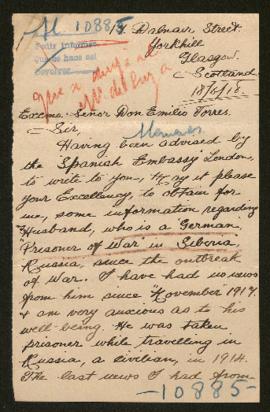 10885
Dalnair Street.
Pedir informes
Yorkhill
Glasgow
Scotland
18/6/18.
Exemo. Senor Don Emilio Torres.
Sir,
Having been advised by
the Spanish Embassy London,
to write to you, may it please
your Excellency, to obtain for
me, some information regarding
Husband, who is a German
"Prisoner of War" in Siberia,
Russia, since the outbreak
of War. I have had no news
from him since November 1917
& am very anxious as to his
well-being. He was taken
prisoner while travelling in
Russia, a civilian, in 1914.
The last news I had from
-10885-